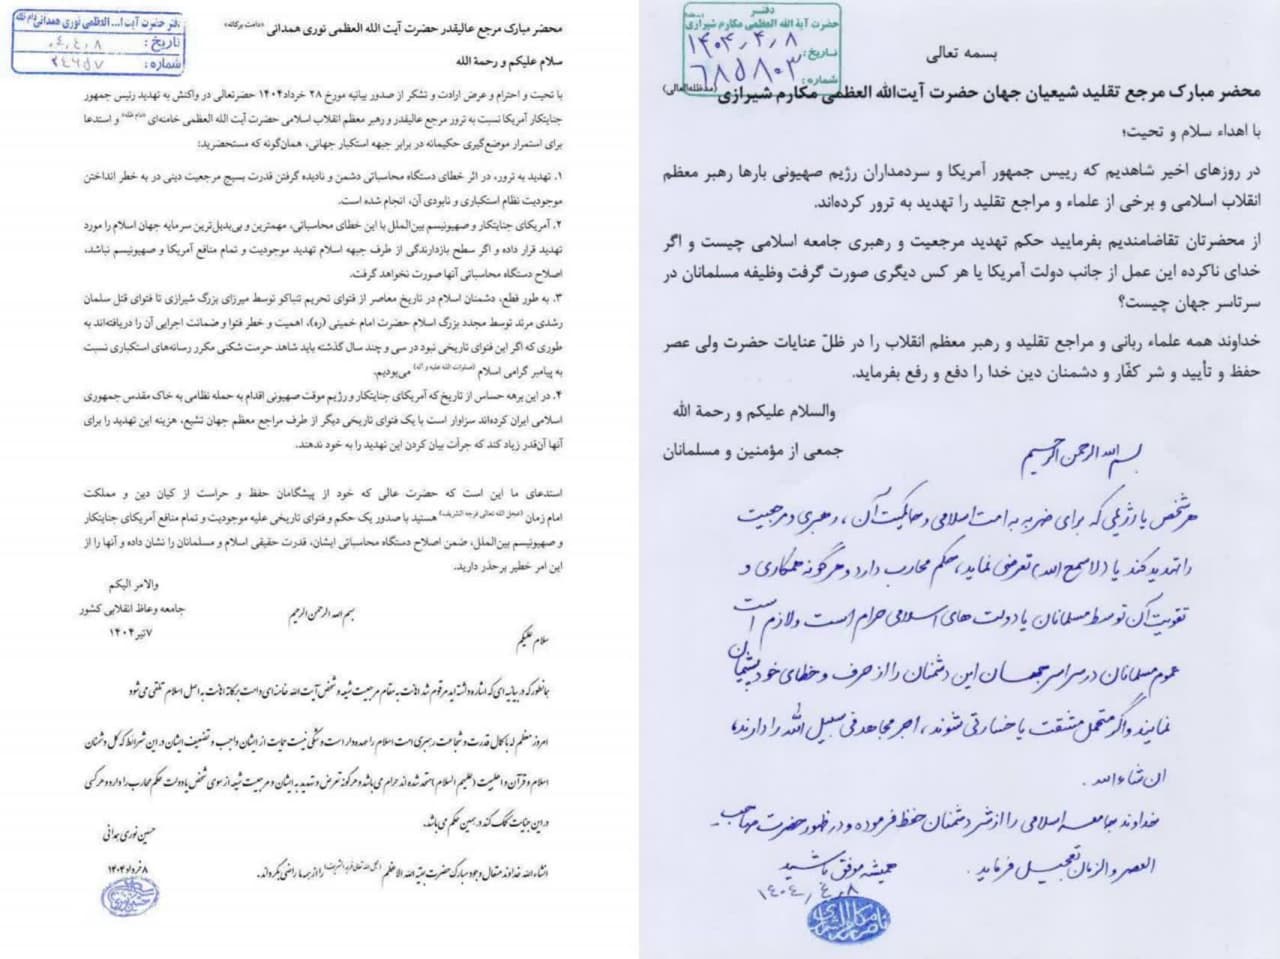 دفتر حضرت آیت ا... العظمی نوری همدانی
تاریخ: ۰۴,۴,۸
شماره: ۲۴۶۵۷
محضر مبارک مرجع عالیقدر حضرت آیت الله العظمی نوری همدانی (دامت برکاته)
سلام علیکم و رحمة الله
با تحیت و احترام و عرض ارادت و تشکر از صدور بیانیه مورخ ۲۸ خرداد۱۴۰۴ حضرتعالی در واکنش به تهدید رئیس جمهور
جنایتکار آمریکا نسبت به ترور مرجع عالیقدر و رهبر معظم انقلاب اسلامی حضرت آیت الله العظمی خامنه‌ای (دام ظله) و استدعا
برای استمرار موضع‌گیری حکیمانه در برابر جبهه استکبار جهانی، همان‌گونه که مستحضرید:
۱. تهدید به ترور، در اثر خطای دستگاه محاسباتی دشمن و نادیده گرفتن قدرت بسیج مرجعیت دینی در به خطر انداختن
موجودیت نظام استکباری و نابودی آن، انجام شده است.
۲. آمریکای جنایتکار و صهیونیسم بین‌الملل با این خطای محاسباتی، مهمترین و بی‌بدیل‌ترین سرمایه جهان اسلام را مورد
تهدید قرار داده و اگر سطح بازدارندگی از طرف جبهه اسلام تهدید موجودیت و تمام منافع آمریکا و صهیونیسم نباشد،
اصلاح دستگاه محاسباتی آنها صورت نخواهد گرفت.
۳. به طور قطع، دشمنان اسلام در تاریخ معاصر از فتوای تحریم تنباکو توسط میرزای بزرگ شیرازی تا فتوای قتل سلمان
رشدی مرتد توسط مجدد بزرگ اسلام حضرت امام خمینی (ره)، اهمیت و خطر فتوا و ضمانت اجرایی آن را دریافته‌اند به
طوری که اگر این فتوای تاریخی نبود در سی و چند سال گذشته باید شاهد حرمت شکنی مکرر رسانه‌های استکباری نسبت
به پیامبر گرامی اسلام (صلوات الله علیه و آله) می‌بودیم.
۴. در این برهه حساس از تاریخ که آمریکای جنایتکار و رژیم موقت صهیونی اقدام به حمله نظامی به خاک مقدس جمهوری
اسلامی ایران کرده‌اند سزاوار است با یک فتوای تاریخی دیگر از طرف مراجع معظم جهان تشیع، هزینه این تهدید را برای
آنها آن‌قدر زیاد کند که جرأت بیان کردن این تهدید را به خود ندهند.
استدعای ما این است که حضرت عالی که خود از پیشگامان حفظ و حراست از کیان دین و مملکت
امام زمان (عجل الله تعالی فرجه الشریف) هستید با صدور یک حکم و فتوای تاریخی علیه موجودیت و تمام منافع آمریکای جنایتکار
و صهیونیسم بین‌الملل، ضمن اصلاح دستگاه محاسباتی ایشان، قدرت حقیقی اسلام و مسلمانان را نشان داده و آنها را از
این امر خطیر برحذر دارید.
والامر الیکم
جامعه وعاظ انقلابی کشور
۷تیر ۱۴۰۴
بسم الله الرحمن الرحیم
سلام علیکم
همانطور که در بیانیه ای که اشاره داشته اید مرقوم شد اهانت به مقام مرجعیت شیعه و شخص آیت الله خامنه ای دامت برکاته اهانت به اصل اسلام تلقی می شود
امروز معظم له با کمال قدرت و شجاعت رهبری امت اسلام را عهده دار است و شکی نیست حمایت از ایشان واجب و تضعیف ایشان در این شرائط که کل دشمنان
اسلام و قرآن و اهلبیت (علیهم السلام) متحد شده اند حرام می باشد و هرگونه تعرض و تهدید به ایشان و مرجعیت شیعه از سوی شخص یا دولت حکم محارب را دارد و هرکسی
در این جنایت کمک کند در همین حکم می باشد.
انشاء الله خداوند متعال وجود مبارک حضرت بقیة الله الاعظم (عجل الله تعالی فرجه الشریف) را از همه ما راضی بگرداند.
حسین نوری همدانی
۸خرداد۱۴۰۴
دفتر
حضرت آیة الله العظمی مکارم شیرازی
تاریخ: ۱۴۰۴,۴,۸
شماره: ۶۸۵۸۰۳
بسمه تعالی
محضر مبارک مرجع تقلید شیعیان جهان حضرت آیت‌الله العظمی مکارم شیرازی (مدظله‌العالی)
با اهداء سلام و تحیت؛
در روزهای اخیر شاهدیم که رییس جمهور آمریکا و سردمداران رژیم صهیونی بارها رهبر معظم
انقلاب اسلامی و برخی از علماء و مراجع تقلید را تهدید به ترور کرده‌اند.
از محضرتان تقاضامندیم بفرمایید حکم تهدید مرجعیت و رهبری جامعه اسلامی چیست و اگر
خدای ناکرده این عمل از جانب دولت آمریکا یا هر کس دیگری صورت گرفت وظیفه مسلمانان در
سرتاسر جهان چیست؟
خداوند همه علماء ربانی و مراجع تقلید و رهبر معظم انقلاب را در ظلّ عنایات حضرت ولی عصر
حفظ و تأیید و شر کفّار و دشمنان دین خدا را دفع و رفع بفرماید.
والسلام علیکم و رحمة الله
جمعی از مؤمنین و مسلمانان
بسم الله الرحمن الرحیم
هر شخص یا رژیمی که برای ضربه به امت اسلامی و حاکمیت آن، رهبری و مرجعیت
را تهدید کند یا (لا سمح الله) تعرضی نماید، حکم محارب دارد و هرگونه همکاری و
تقویت آن توسط مسلمانان یا دولت های اسلامی حرام است و لازم است
عموم مسلمانان در سراسر جهان این دشمنان را از حرف و خطای خود پشیمان
نمایند و اگر متحمل مشقت یا خسارتی شوند، اجر مجاهد فی سبیل الله را دارند،
ان شاءالله.
خداوند جامعه اسلامی را از شر دشمنان حفظ فرموده و در ظهور حضرت صاحب
العصر و الزمان تعجیل فرماید.
همیشه موفق باشید
۱۴۰۴,۴,۸